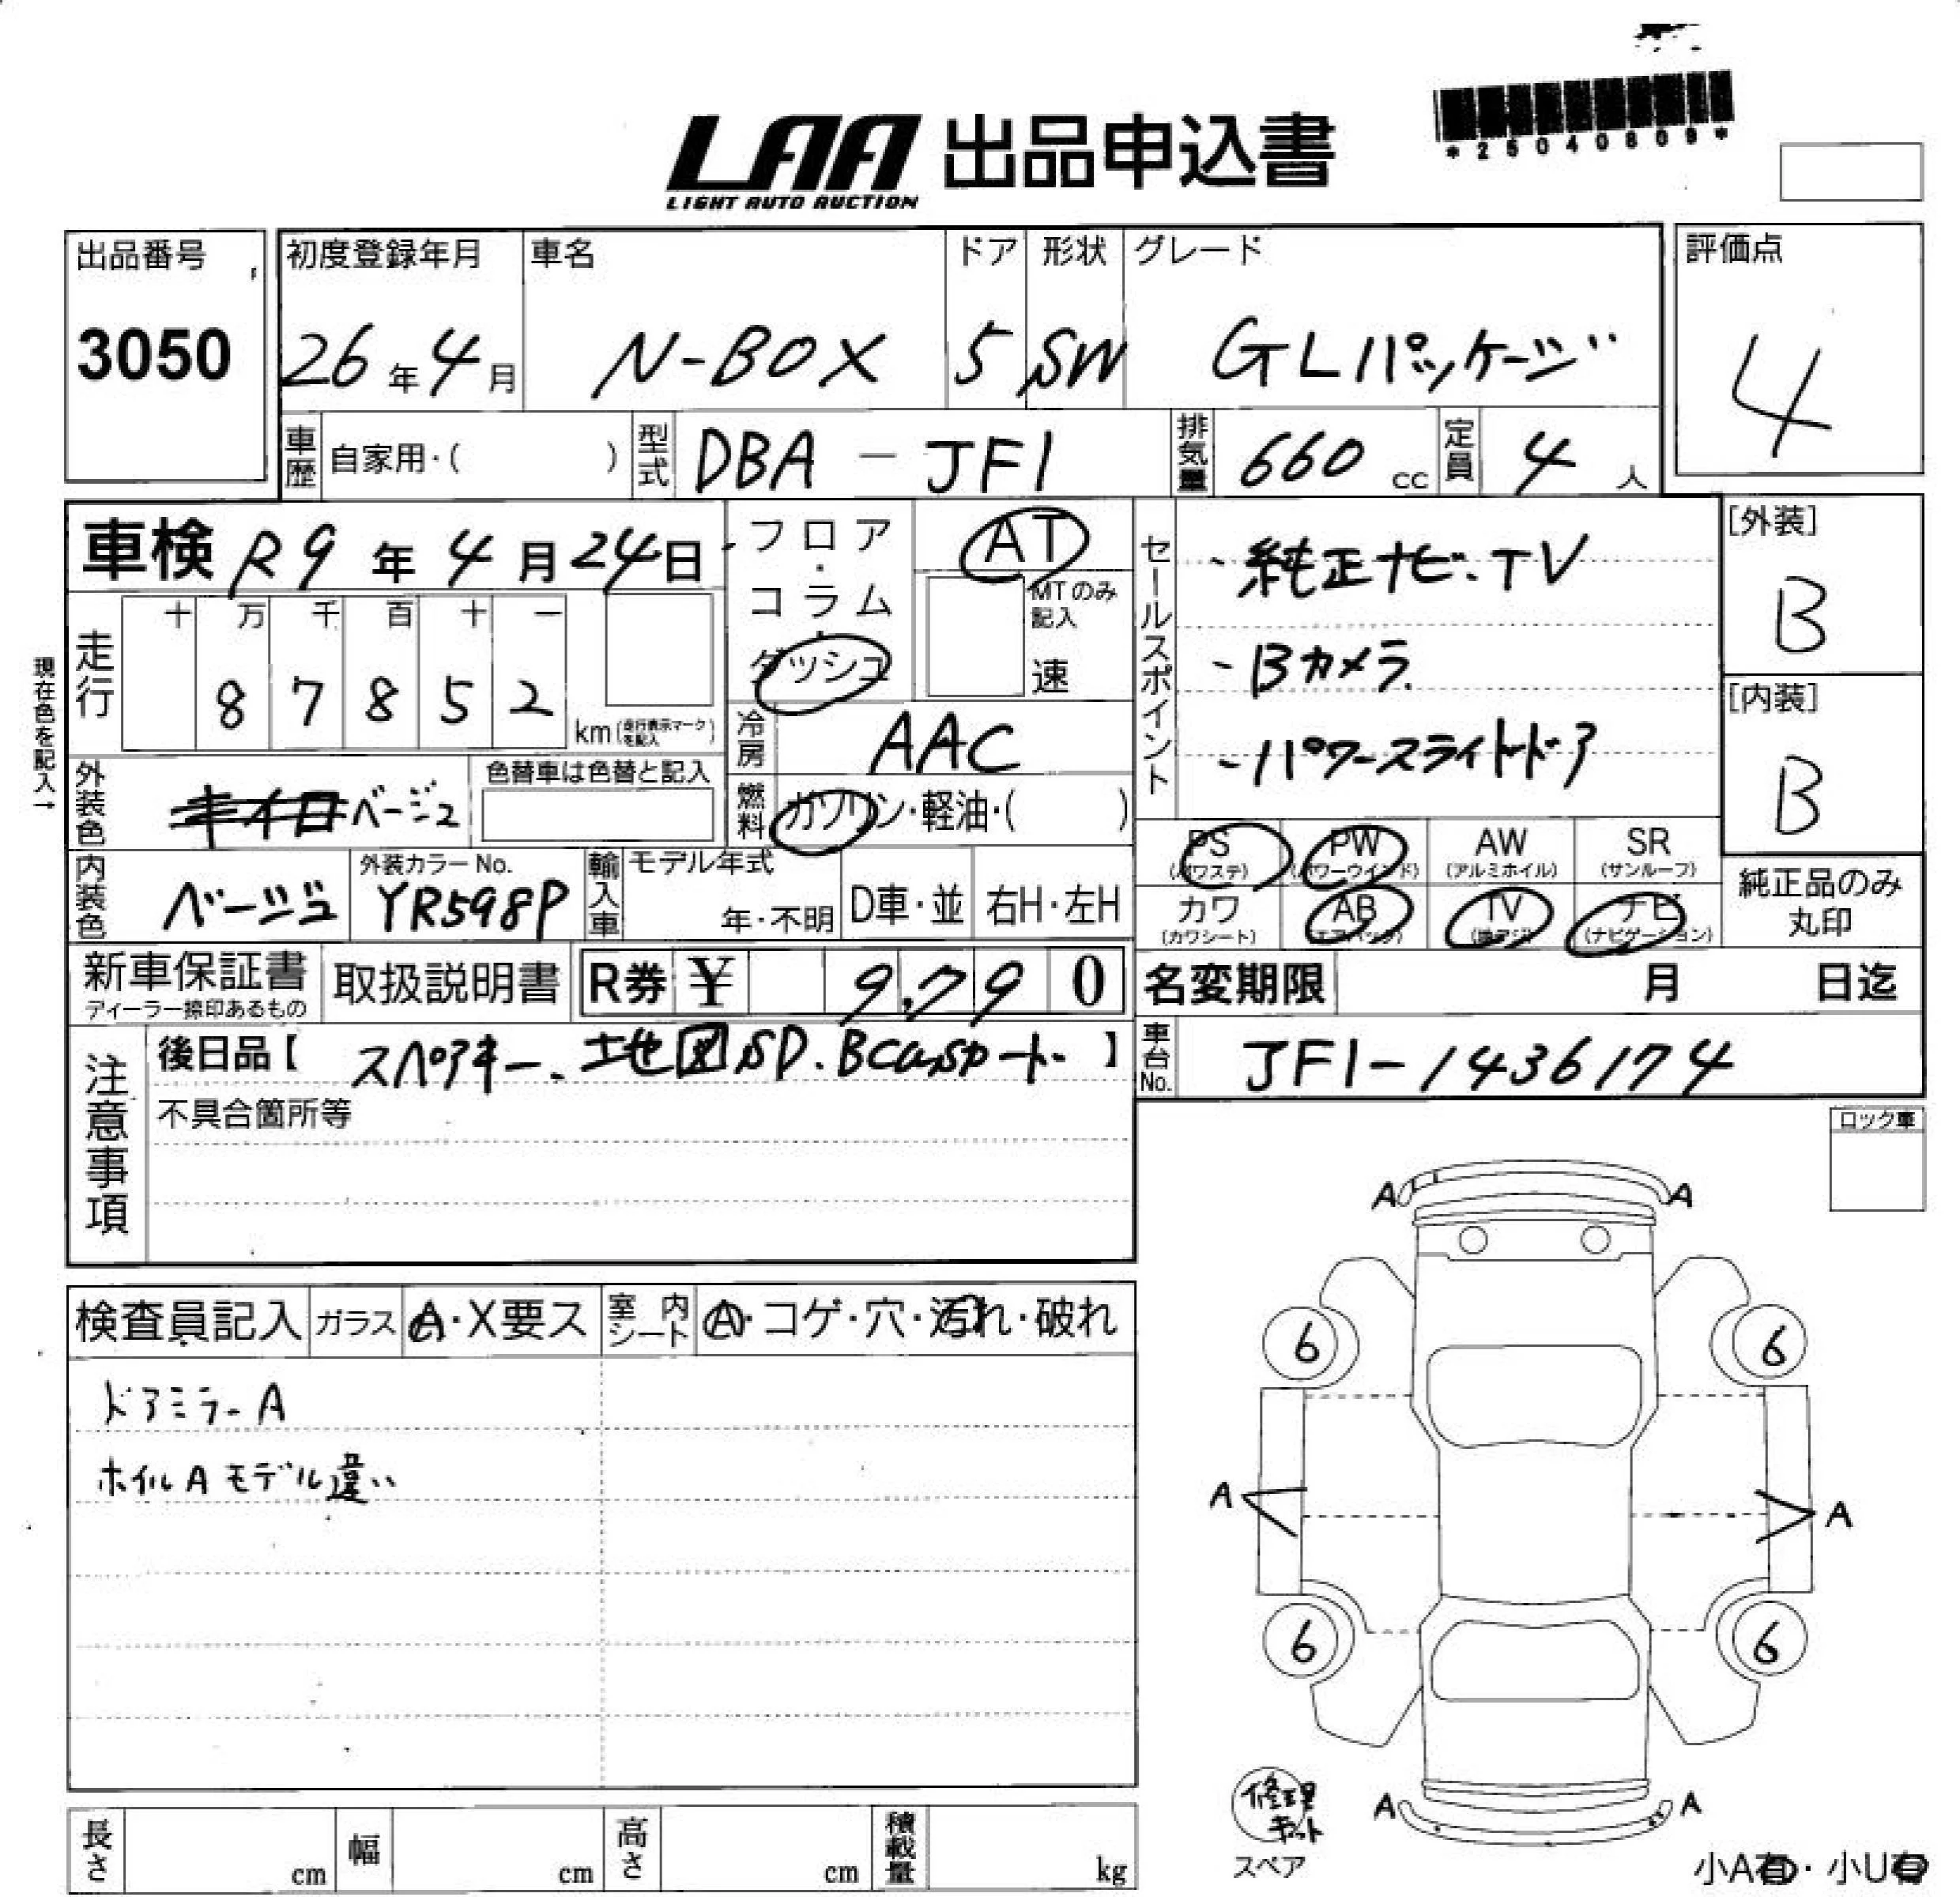 *25040809*
LAA 出品申込書
LIGHT AUTO AUCTION
出品番号 初度登録年月 車名 ドア 形状 グレード 評価点
3050 26年4月 N-BOX 5 SW GLパッケージ 4
車歴 自家用・( ) 型式 DBA-JF1 排気量 660 cc 定員 4 人
車検 R9年4月24日 フロア・コラム・ダッシュ AT セールスポイント ・純正ナビ.TV [外装]
走行 十 万 千 百 十 一 MTのみ記入 B
8 7 8 5 2 km (走行表示マークを記入) 速 -Bカメラ [内装]
現在色を記入→ 冷房 AAC -パワースライドドア B
外装色 キイロ ベージュ 色替車は色替と記入 燃料 ガソリン・軽油・( )
PS (パワステ) PW (パワーウインド) AW (アルミホイル) SR (サンルーフ)
内装色 ベージュ 外装カラーNo. YR598P 輸入車 モデル年式 年・不明 D車・並 右H・左H
カワ (カワシート) AB (エアバック) TV ナビ (ナビゲーション) 純正品のみ丸印
新車保証書 取扱説明書 R券 ¥ 9,790 名変期限 月 日迄
ディーラー捺印あるもの
注意事項 後日品【スペアキー、地図SD.Bcasカード】 車台No. JF1-1436174
不具合箇所等
ロック車
A A
検査員記入 ガラス A・X要ス 室内シート A・コゲ・穴・汚れ・破れ
6 6
ドアミラーA
ホイルAモデル違い
A A
6 6
修理キット
スペア
A A
長さ cm 幅 cm 高さ cm 積載量 kg
小A有・小U有